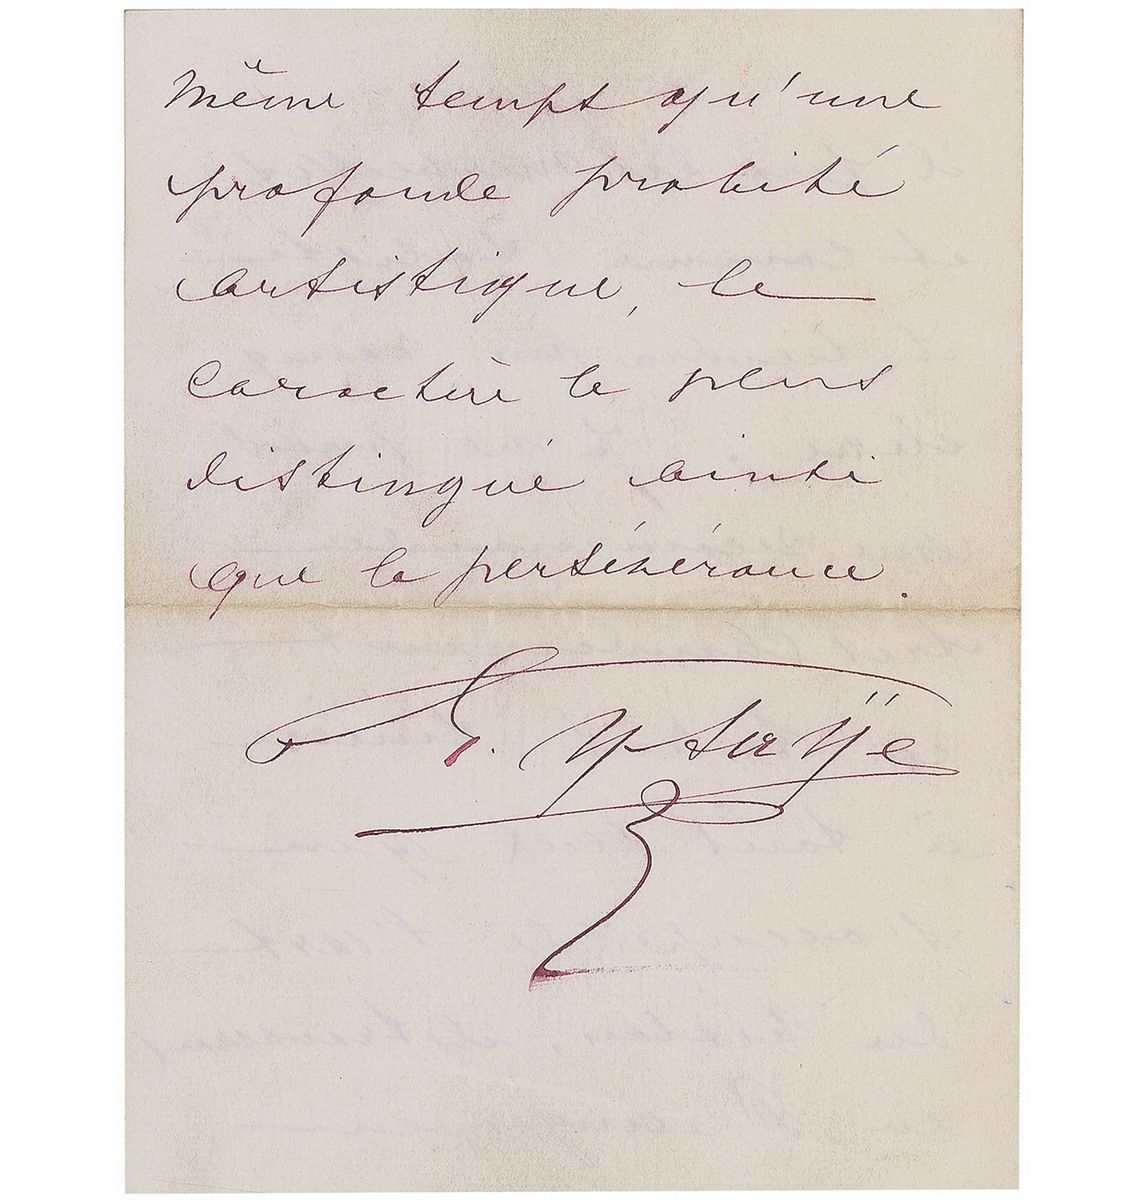 même temps qu'une
profonde probité
artistique, le
caractère le plus
distingué ainsi
que la persévérance.
E. Ysaÿe